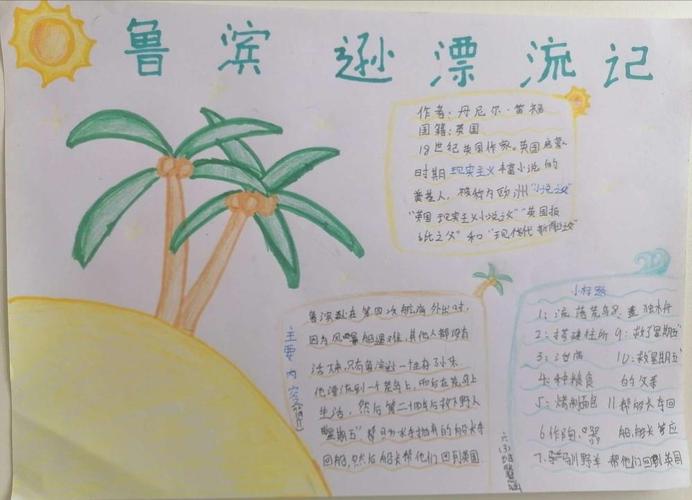 鲁滨逊漂流记
作者：丹尼尔·笛福
国籍：英国
18世纪英国作家。英国启蒙
时期现实主义丰富小说的
奠基人，被称为欧洲“小说之父”
“英国现实主义小说之父”“英国报
纸之父”和“现代新闻之父”
主要内容
鲁滨逊在第四次航海外出时，
因为风暴船遇难，其他人都没有
活下来，只有鲁滨逊一个生存了下来
他漂流到一个荒岛上，而后在荒岛上
生活，然后第二十四年后救下野人
“星期五”帮
回船，然后船长帮他们回到英国
小标题
1：流落荒岛 8：造独木舟
2：搭建住所 9：救了星期五
3：10：救星期五
4：种粮食 的父亲
5：烤制面包 11 帮船长夺回
6 作陶器 船，船长答应
7：驯野羊 帮他们回到英国